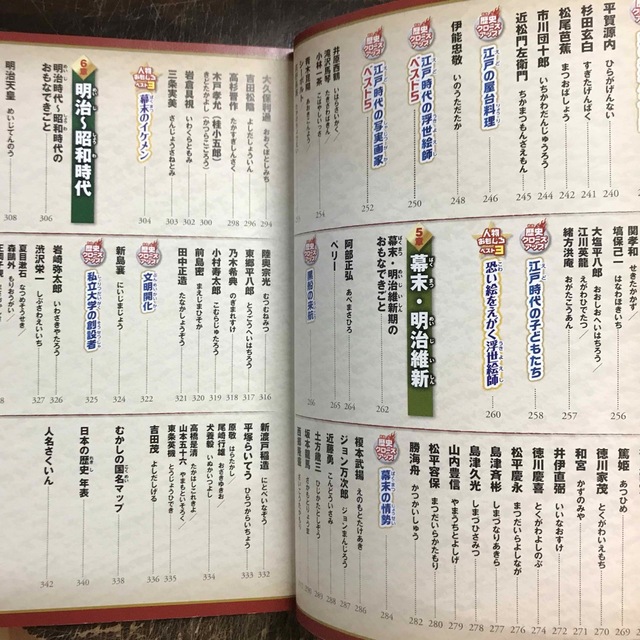 平賀源内 ひらがげんない 240
杉田玄白 すぎたげんぱく 241
松尾芭蕉 まつおばしょう 242
市川団十郎 いちかわだんじゅうろう 244
近松門左衛門 ちかまつもんざえもん 245
歴史クローズアップ!
江戸の屋台料理 246
伊能忠敬 いのうただたか 248
歴史クローズアップ!
江戸時代の浮世絵師ベスト5 250
歴史クローズアップ!
江戸時代の写実画家ベスト5 252
井原西鶴 いはらさいかく
滝沢馬琴
小林一茶 254
関孝和 せきたかかず
塙保己一 はなわほきいち 256
大塩平八郎 おおしおへいはちろう/
江川英龍 えがわひでたつ/
緒方洪庵 おがたこうあん 257
歴史クローズアップ!
江戸時代の子どもたち 258
人物おもしろベスト3
恐い絵をえがく浮世絵師 260
5章 幕末・明治維新
幕末・明治維新期の
おもなできごと 262
阿部正弘 あべまさひろ 264
ペリー 265
歴史クローズアップ!
黒船の来航 266
篤姫 あつひめ
徳川家茂 とくがわいえもち 270
和宮 かずのみや 271
井伊直弼 いいなおすけ 272
徳川慶喜 とくがわよしのぶ 274
松平慶永 まつだいらよしなが 276
島津斉彬 しまづなりあきら 277
島津久光 しまづひさみつ 278
山内豊信 やまうちとよしげ 279
松平容保 まつだいらかたもり 280
勝海舟 かつかいしゅう 282
歴史クローズアップ!
幕末の情勢 284
榎本武揚 えのもとたけあき 286
ジョン万次郎 ジョンまんじろう 287
近藤勇 こんどういさみ 288
土方歳三 ひじかたとしぞう 289
坂本龍馬
大久保利通 おおくぼとしみち 294
吉田松陰 よしだしょういん 296
高杉晋作 たかすぎしんさく 298
木戸孝允(桂小五郎)
きどたかよし(かつらこごろう) 300
岩倉具視 いわくらともみ 302
三条実美 さんじょうさねとみ 303
人物おもしろベスト3
幕末のイケメン 304
6章 明治~昭和時代
明治時代~昭和時代の
おもなできごと 306
明治天皇 めいじてんのう 308
陸奥宗光 むつむねみつ 316
東郷平八郎 とうごうへいはちろう 317
乃木希典 のぎまれすけ 318
小村寿太郎 こむらじゅたろう 319
前島密 まえじまひそか 320
田中正造 たなかしょうぞう 321
歴史クローズアップ!
文明開化 322
新島襄 にいじまじょう 324
歴史クローズアップ!
私立大学の創設者 325
岩崎弥太郎 いわさきやたろう 326
渋沢栄一 しぶさわえいいち 327
夏目漱石 なつめそうせき/
森鷗外 もりおうがい/
新渡戸稲造 にとべいなぞう 332
平塚らいてう ひらつからいちょう 333
原敬 はらたかし
尾崎行雄 おざきゆきお
犬養毅 いぬかいつよし 334
高橋是清 たかはしこれきよ
山本五十六 やまもといそろく
東条英機 とうじょうひでき 335
吉田茂 よしだしげる 336
むかしの国名マップ 338
日本の歴史 年表 340
人名さくいん 342